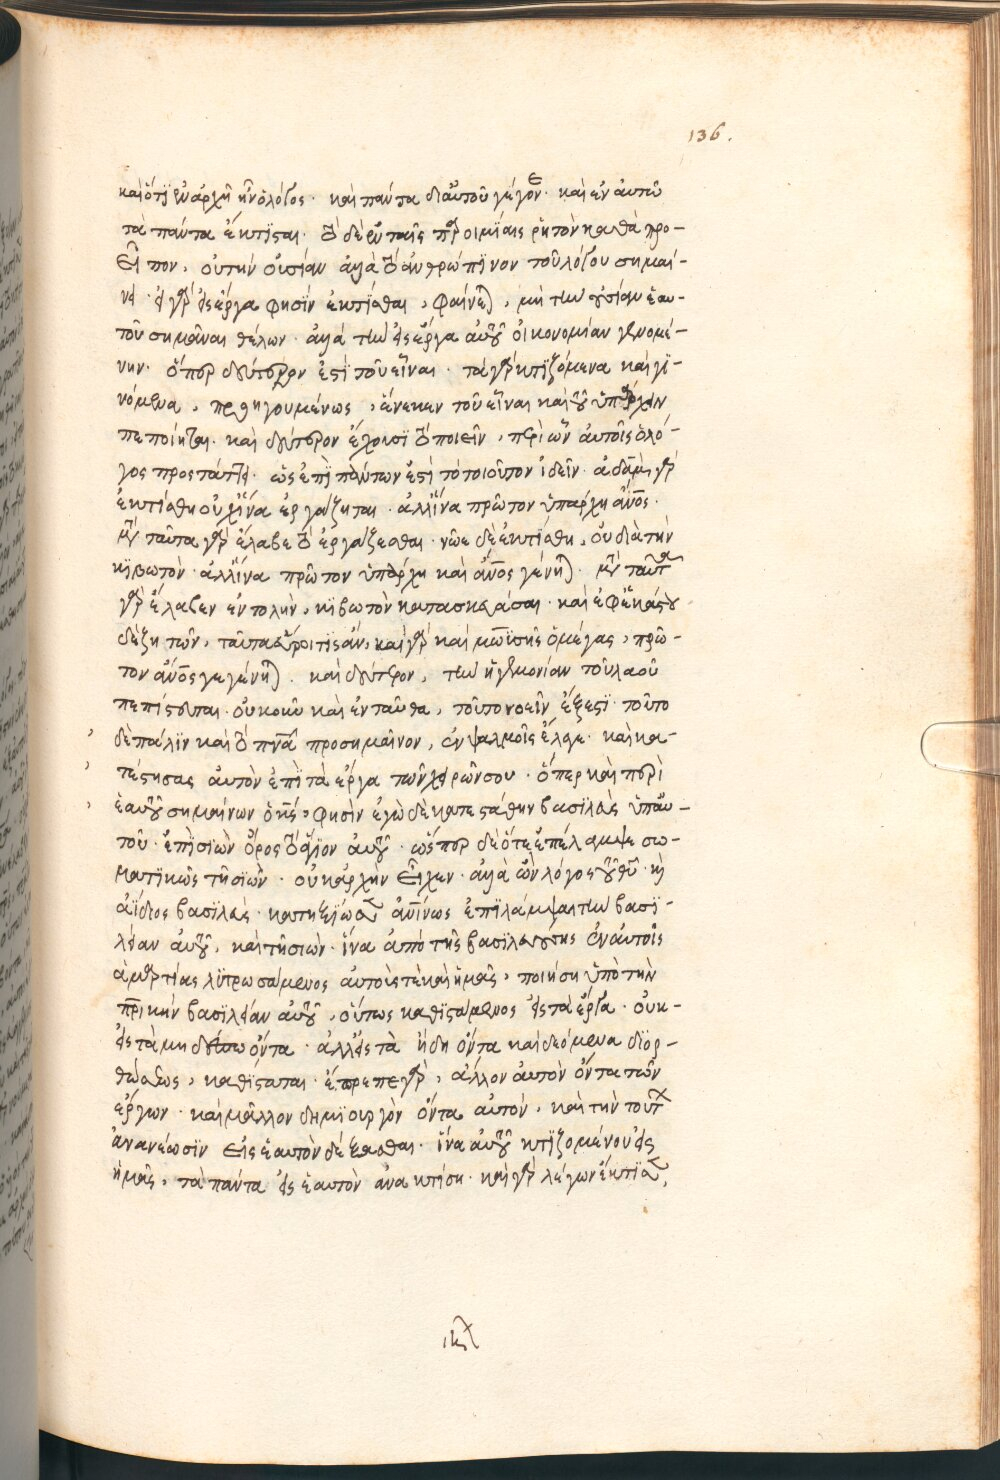 136.
καὶ ὅτι ἐν ἀρχῆ ἦν ὁ λόγος · καὶ πάντα δι αὐτοῦ γέγον · καὶ ἐν αὐτῶ
τὰ πάντα ἐκτίσται · τὸ δὲ ἐν ταῖς παροιμίαις ρητὸν καθὰ προ-
εῖπον, οὐ τὴν οὐσίαν ἀλλὰ τὸ ἀνθρώπινον τοῦ λόγου σημαί-
νει · εἰ γὰρ εἰς ἔργα φησὶν ἐκτίσθαι, φαίνεται, μὴ τὴν οὐσίαν ἑαυ-
τοῦ σημᾶναι θέλων · ἀλλὰ τὴν εἰς ἔργα αὐτοῦ οἰκονομίαν γενομέ-
νην · ὅπερ δεύτερον ἐστὶ τοῦ εἶναι · τὰ γὰρ κτιζόμενα καὶ γι-
νόμενα, προηγουμένως, ἕνεκεν τοῦ εἶναι καὶ τοῦ ὑπάρχειν
πεποίηται · καὶ δεύτερον ἔχουσι τὸ ποιεῖν, περὶ ὧν αὐτοῖς ὁ λό-
γος προστάττει · ὡς ἐπὶ πάντων ἐστὶ τὸ τοιοῦτον ἰδεῖν · ἀδὰμ γὰρ
ἐκτίσθη οὐχ ἵνα ἐργάζηται · ἀλλ ἵνα πρῶτον ὑπάρχη ἄνος ·
μετὰ ταῦτα γὰρ ἔλαβε τὸ ἐργάζεσθαι · νῶε δὲ ἐκτίσθη, οὐ διὰ τὴν
κιβωτὸν · ἀλλ ἵνα πρῶτον ὑπάρχη καὶ ἄνος γένηται · μετὰ ταῦτα
γὰρ ἔλαβεν ἐντολὴν, κιβωτὸν κατασκευάσαι · καὶ ἐφ ἑκάστου
δὲ ζητῶν, ταῦτα εὕροι τις ἂν, καὶ γὰρ καὶ μωϊσῆς ὁ μέγας, πρῶ-
τον ἄνος γεγένηται · καὶ δεύτερον, τὴν ἡγεμονίαν τοῦ λαοῦ
πεπίστευται · οὐκοῦν καὶ ἐνταῦθα, τοῦτο νοεῖν ἔξεστι · τοῦτο
δὲ πάλιν καὶ τὸ πνᾶ προσημαῖνον, ἐν ψαλμοῖς ἔλεγε · καὶ κα-
τέστησας αὐτὸν ἐπὶ τὰ ἔργα τῶν χειρῶν σου · ὅπερ καὶ περὶ
ἑαυτοῦ σημαίνων ὁ κς, φησὶν ἐγὼ δὲ κατεστάθην βασιλεὺς ὑπ αὐ-
τοῦ · ἐπὶ σιὼν ὄρος τὸ ἅγιον αὐτοῦ · ὥσπερ δὲ ὅτε ἐπέλαμψε σω-
ματικῶς τῆ σιὼν · οὐκ ἀρχὴν εἶχεν · ἀλλὰ ὢν λόγος τοῦ θυ καὶ
ἀΐδιος βασιλεὺς · κατηξίωσεν ἀνίνως ἐπιλάμψαι τὴν βασι-
λείαν αὐτοῦ, καὶ τῆ σιὼν · ἵνα ἀπὸ τῆς βασιλευούσης ἐν αὐτοῖς
ἁμαρτίας λυτρωσάμενος αὐτούς τε καὶ ἡμᾶς, ποιήση ὑπὸ τὴν
πρικὴν βασιλείαν αὐτοῦ, οὕτως καθιστάμενος εἰς τὰ ἔργα · οὐκ -
εἰς τὰ μηδέπω ὄντα · ἀλλ εἰς τὰ ἤδη ὄντα καὶ δεόμενα διορ-
θώσεως, καθίσταται · ἔπρεπε γὰρ, ἄλλον αὐτὸν ὄντα τῶν
ἔργων · καὶ μᾶλλον δημιουργὸν ὄντα αὐτὸν, καὶ τὴν τούτων
ἀνανέωσιν εἰς ἑαυτὸν δέξασθαι · ἵνα αὐτοῦ κτιζομένου εἰς
ἡμᾶς, τὰ πάντα εἰς ἑαυτὸν ἀνακτίση · καὶ γὰρ λέγων ἔκτισε,